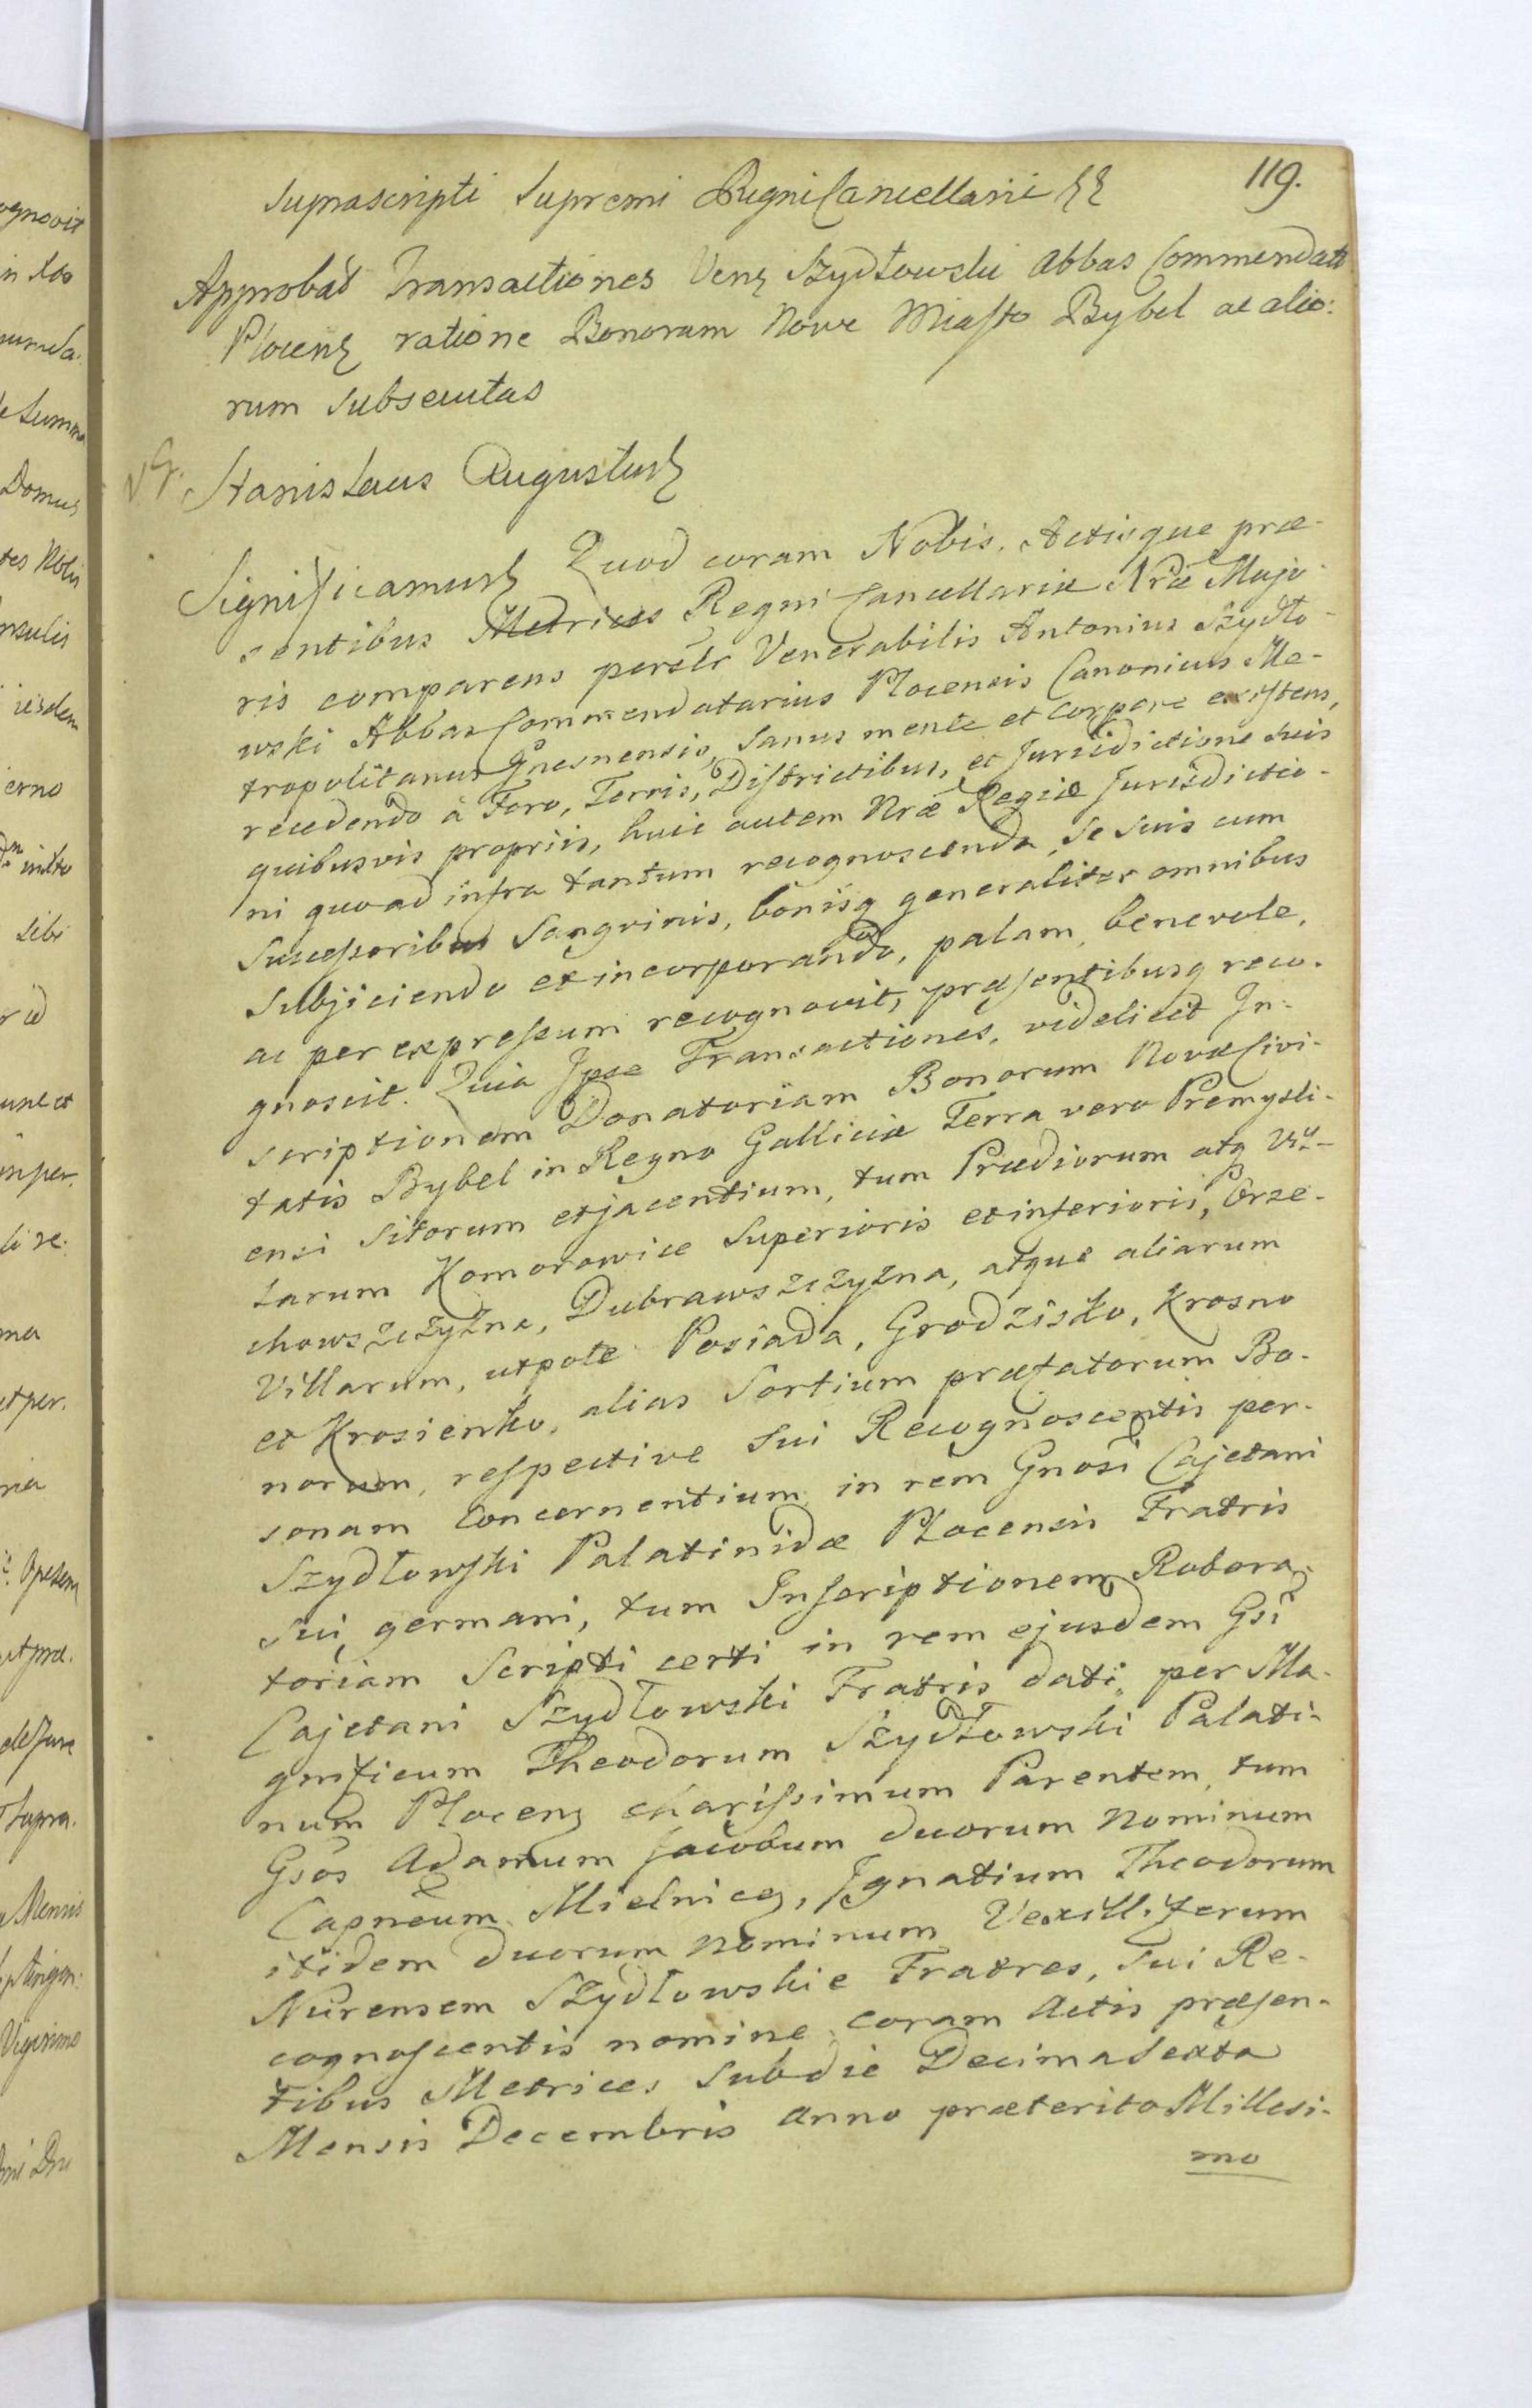 119.
Suprascripti Supremi Regni Cancellarii
Approbat Transactiones Ven Szydłowski Abbas Commendat
Plocen ratione Bonorum Nowe Miasto Bybel ac alio:
rum subsecutas
Stanislaus Augustus
Significamus Quod coram Nobis, Actisque præ-
sentibus Metrices Regni Cancellariæ Nræ Majo-
ris comparens persłr Venerabilis Antonius Szydło-
wski Abbas Commendatarius Plocensis Canonicus Me-
tropolitanus Gnesnensis, Sanus mente et corpore existens,
recedendo à Foro, Terris, Districtibus, et Jurisdictione suis
quibusvis propriis, huic autem Nræ Regiæ Jurisdictio-
ni quoad infra tantum recognoscenda, se suis cum
Successoribus Sangvinis, bonisq generaliter omnibus
Subjiciendo et incorporando, palam, benevole,
ac per expressum recognovit, præsentibusq reco-
gnoscit. Quia Ipse Transactiones, videlicet In-
scriptionem Donatoriam Bonorum Novæ Civi-
tatis Bybel in Regno Galliciæ Terra vero Premysli-
ensi sitorum et jacentium, tum Prædiorum atq Vil-
larum Komorowice Superioris et inferioris, Orze-
chowszczyzna, Dubrawszczyzna, atque aliarum
Villarum, utpote Posiada, Grodzisko, Krosno
et Krosienko, alias Sortium præfatorum Bo-
norum, respective sui Recognoscentis per-
sonam Concernentium in rem Gnosi Cajetani
Szydłowski Palatinidæ Plocensis Fratris
sui germani, tum Inscriptionem Robora-
toriam Scripti certi in rem ejusdem Gsi
Cajetani Szydłowski Fratris dati, per Ma-
gnificum Theodorum Szydłowski Palati-
num Plocen charissimum Parentem, tum
Gsos Adamum Jacobum duorum Nominum
Capneum Mielnicen, Ignatium Theodorum
itidem duorum Nominum Vexilliferum
Nurensem Szydłowskie Fratres, sui Re-
cognoscentis nomine coram Actis præsen-
tibus Metrices sub die Decima Sexta
Mensis Decembris Anno præterito Millesi-
mo